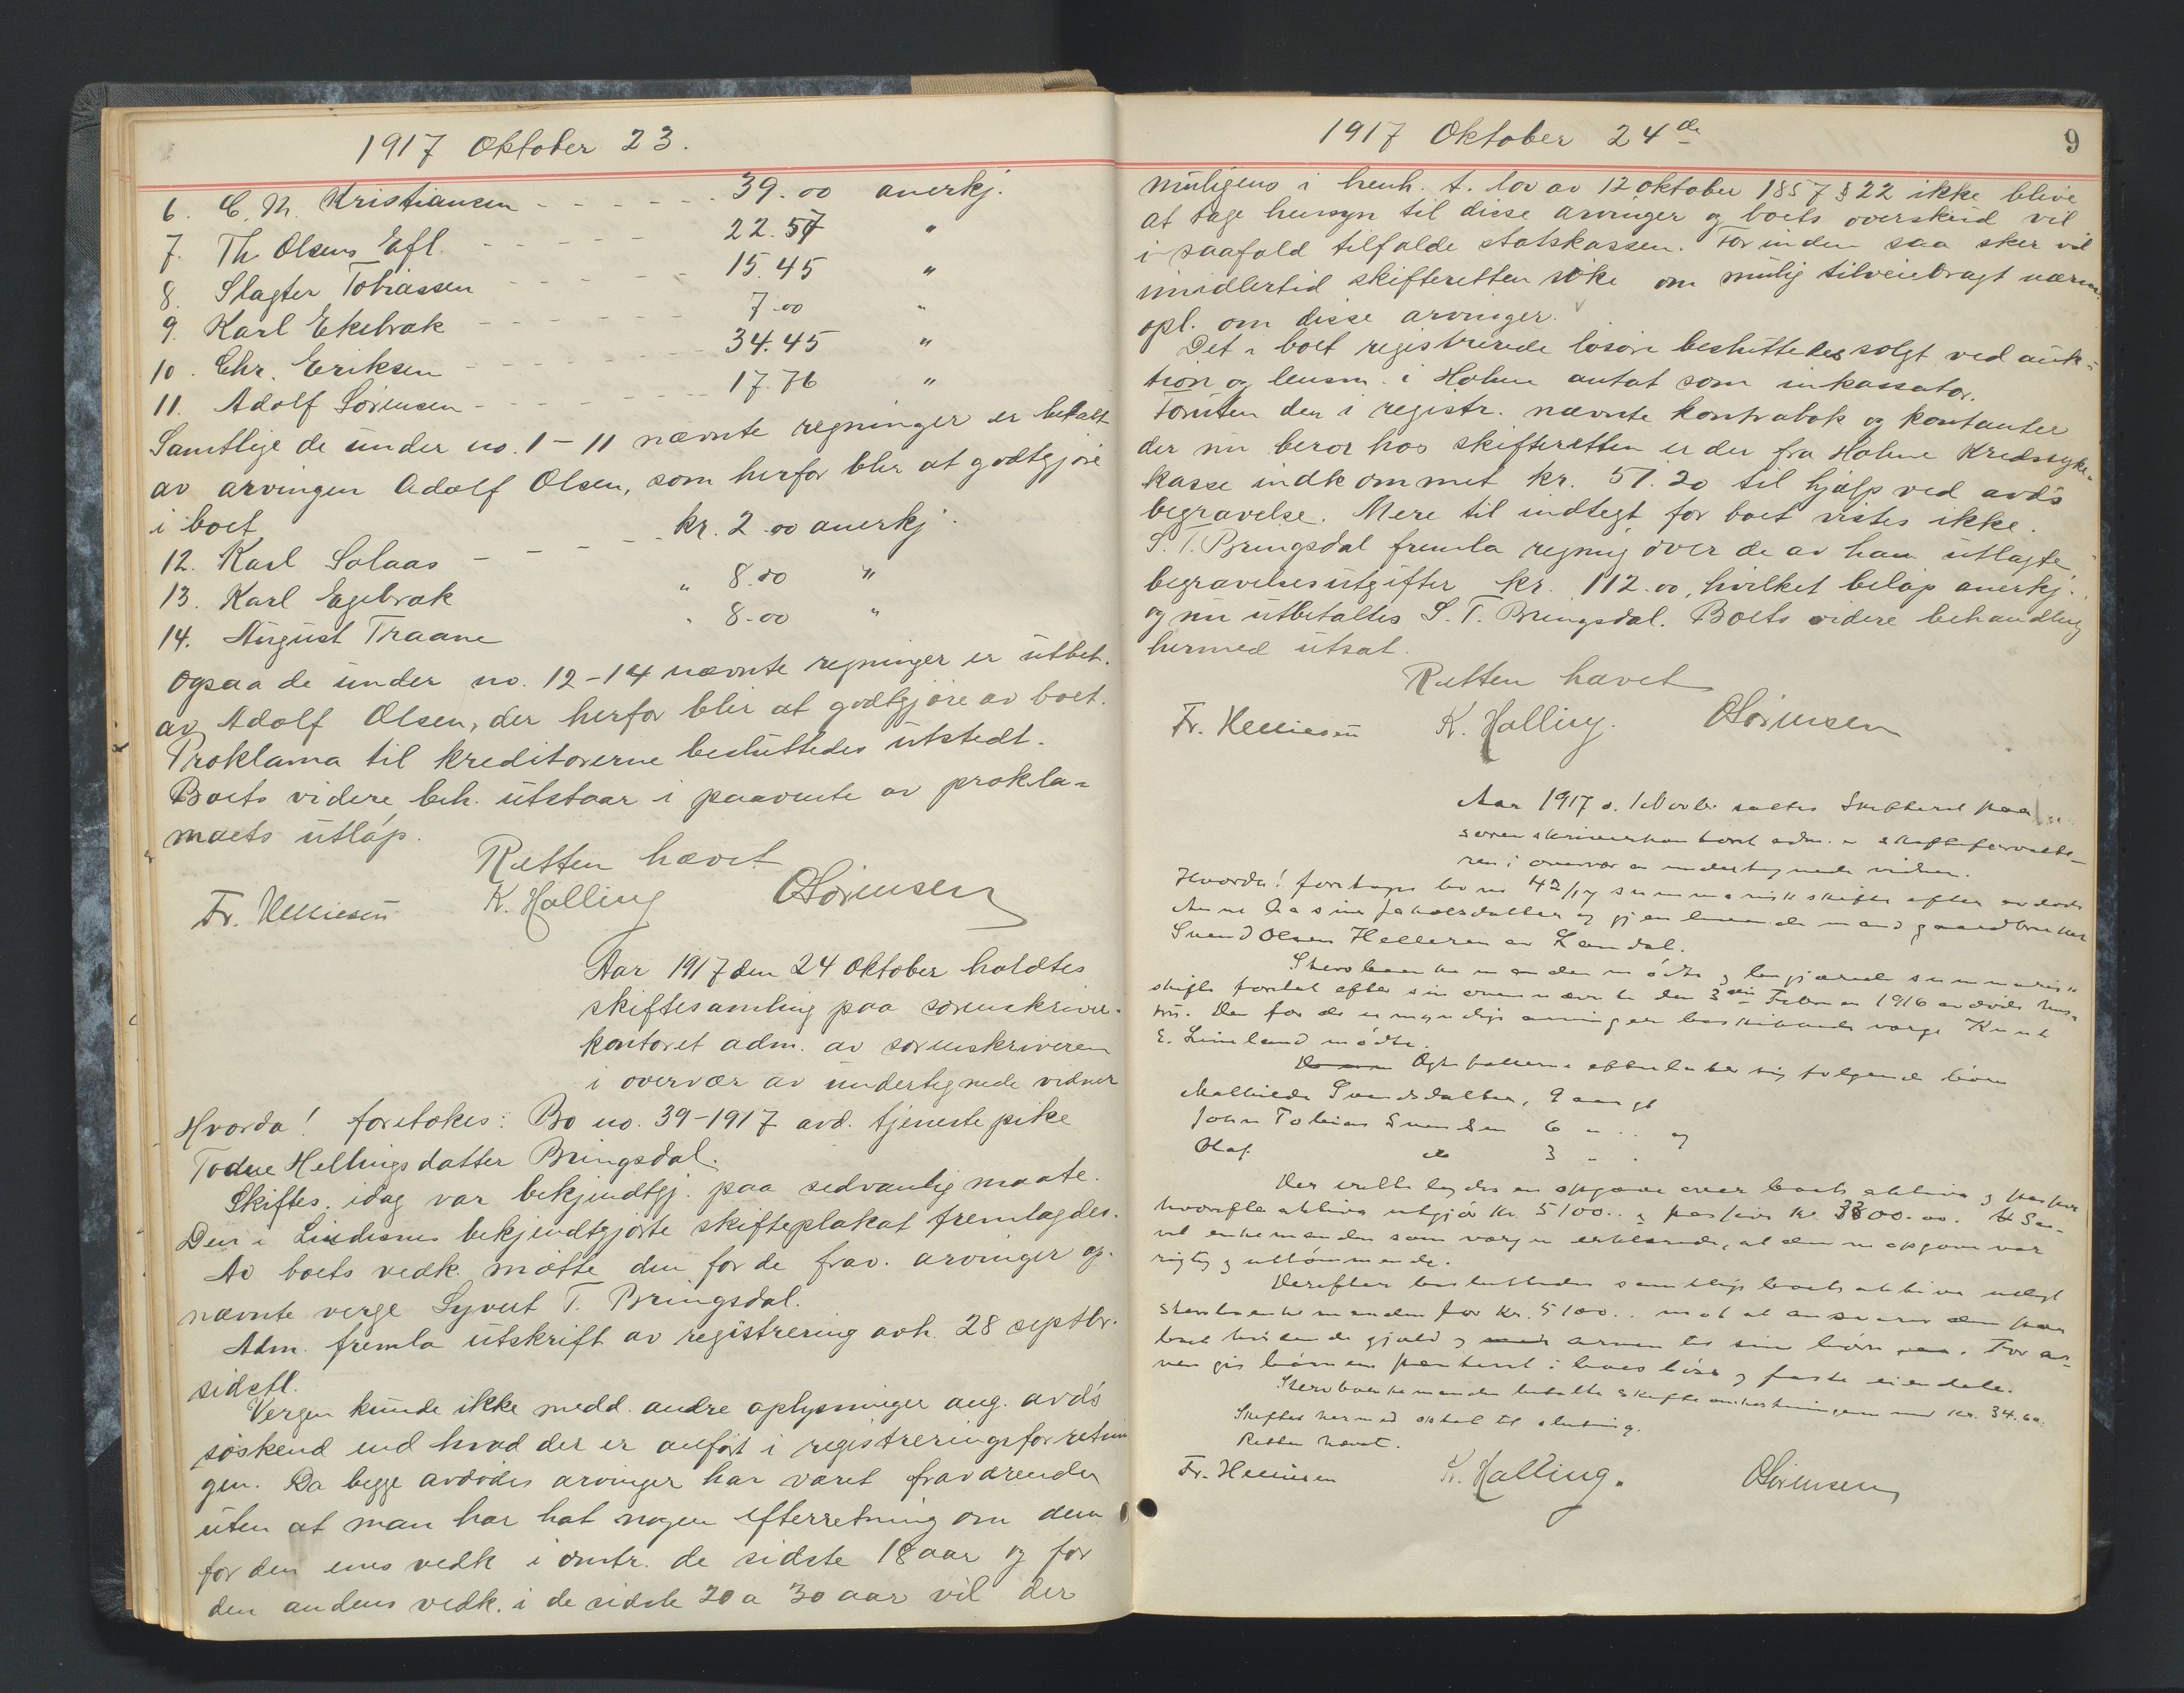 1917 Oktober 23.
6. C. M. Kristiansen - - - - - - 39.00 anerkj.
7. Th Olsens Efl. - - - - - - 22.57 "
8. Slagter Tobiassen - - - 15.45 "
9. Karl Ekebrak - - - - - - 7.00 "
10. Chr. Eriksen - - - - - - 34.45 "
11. Adolf Sørensen - - - - - - 17.76 "
Samtlige de under no. 1 - 11 nævnte regninger er betalt
av arvingen Adolf Olsen, som herfor blir at godtgjøre
i boet
12. Karl Solaas - - - - - kr. 2.00 anerkj.
13. Karl Egebrak " 8.00 "
14. August Traane " 8.00 "
Ogsaa de under no. 12 - 14 nævnte regninger er utbet.
av Adolf Olsen, der herfor blir at godtgjøre av boet.
Proklama til kreditorerne besluttedes utstedt.
Boets videre beh. utstaar i paavente av prokla-
maets utløp.
Retten hævet
K. Halling OSørensen
Aar 1917 den 24 Oktober holdtes
skiftesamling paa sorenskriver-
kontoret adm. av sorenskriveren
i overvær av undertegnede vidner
Hvorda! foretokes: Bo no. 39-1917 avd. tjenestepike
Todne Hellingsdatter Bringsdal.
Skiftes. idag var bekjendtgj. paa sedvanlig maate.
Den i Lindesnes bekjendtgjorte skifteplakat fremlagdes.
Av boets vedk. møtte den for de frav. arvinger op-
nævnte verge Syvert T. Bringsdal.
Adm. fremla utskrift av registrering avh. 28 septbr.
sidstl.
Vergen kunde ikke medd. andre oplysninger ang. avd's
søskend end hvad der er anført i registreringsforretnin
gen. Da begge avdødes arvinger har været fraværende
uten at man har hat nogen efterretning om dem
for den enes vedk i omtr. de sidste 18 aar og for
den andens vedk. i de sidste 20 a 30 aar vil der
1917 Oktober 24de
9
muligens i henh. t. lov av 12 oktober 1857 § 22 ikke blive
at tage hensyn til disse arvinger og boets overskud vil
i saafald tilfalde statskassen. Forinden saa sker vil
imidlertid skifteretten søke om mulig tilveiebragt nærm.
opl. om disse arvinger.
Det i boet registrerede løsøre besluttedes solgt ved auk-
tion og lensm. i Holme antat som inkassator.
Foruten den i registr. nævnte kontrabok og kontanter
der nu beror hos skifteretten er der fra Holme Kredssyke-
kasse indkommet kr. 51.20 til hjælp ved avd's
begravelse. Mere til indtegt for boet vistes ikke.
S. T. Bringsdal fremla regning over de av ham utlagte
begravelsesutgifter kr. 112.00, hvilket beløp anerkj.
og nu utbetaltes S. T. Bringsdal. Boets videre behandling
hermed utsat.
Retten hævet
K. Halling. OSørensen
Aar 1917 d. 1 Novbr. sattes Skifteret paa
sorenskriverkontoret adm. av skifteforvalte-
ren i overvær av undertegnede vidner.
Hvorda! foretoges bo no 42/17 summarisk skifte efter avdøde
Anne Jakobsdatter og gjenlevende mand gaardbruker
Svend Olsen Helleren av Laudal.
Stervboenkemanden mødte og begjærede summarisk
skifte foretat efter sin ovennævnte den 3die Februar 1916 avdøde hus-
tru. Den for de umyndige arvinger beskikkede værge Knut
E. Lineland mødte.
Ægtefællerne efterlater sig følgende børn
Mathilde Svendsdatter, 9 aar gl
John Tobias Svendsen 6 " " og
Olaf do 3 " "
Der fremlagdes en opgave over boets aktiva og passiva
hvorefter aktiva utgjør kr. 5100.. og passiva kr. 3300.00. Saa-
vel enkemanden som værgen erklærede, at denne opgave var
rigtig og uttømmende.
Derefter besluttedes samtlige boets aktiva utlagt
stervboenkemanden for kr. 5100.. mot at ansvare den paa
boet hvilende gjæld og arven til sine børn. For ar-
ven gis børnene panteret i boets løse og faste eiendele.
Stervboenkemanden betalte skifteomkostningerne med kr. 34.60.
Skiftet hermed optat til slutning.
Retten hævet.
K. Halling. OSørensen